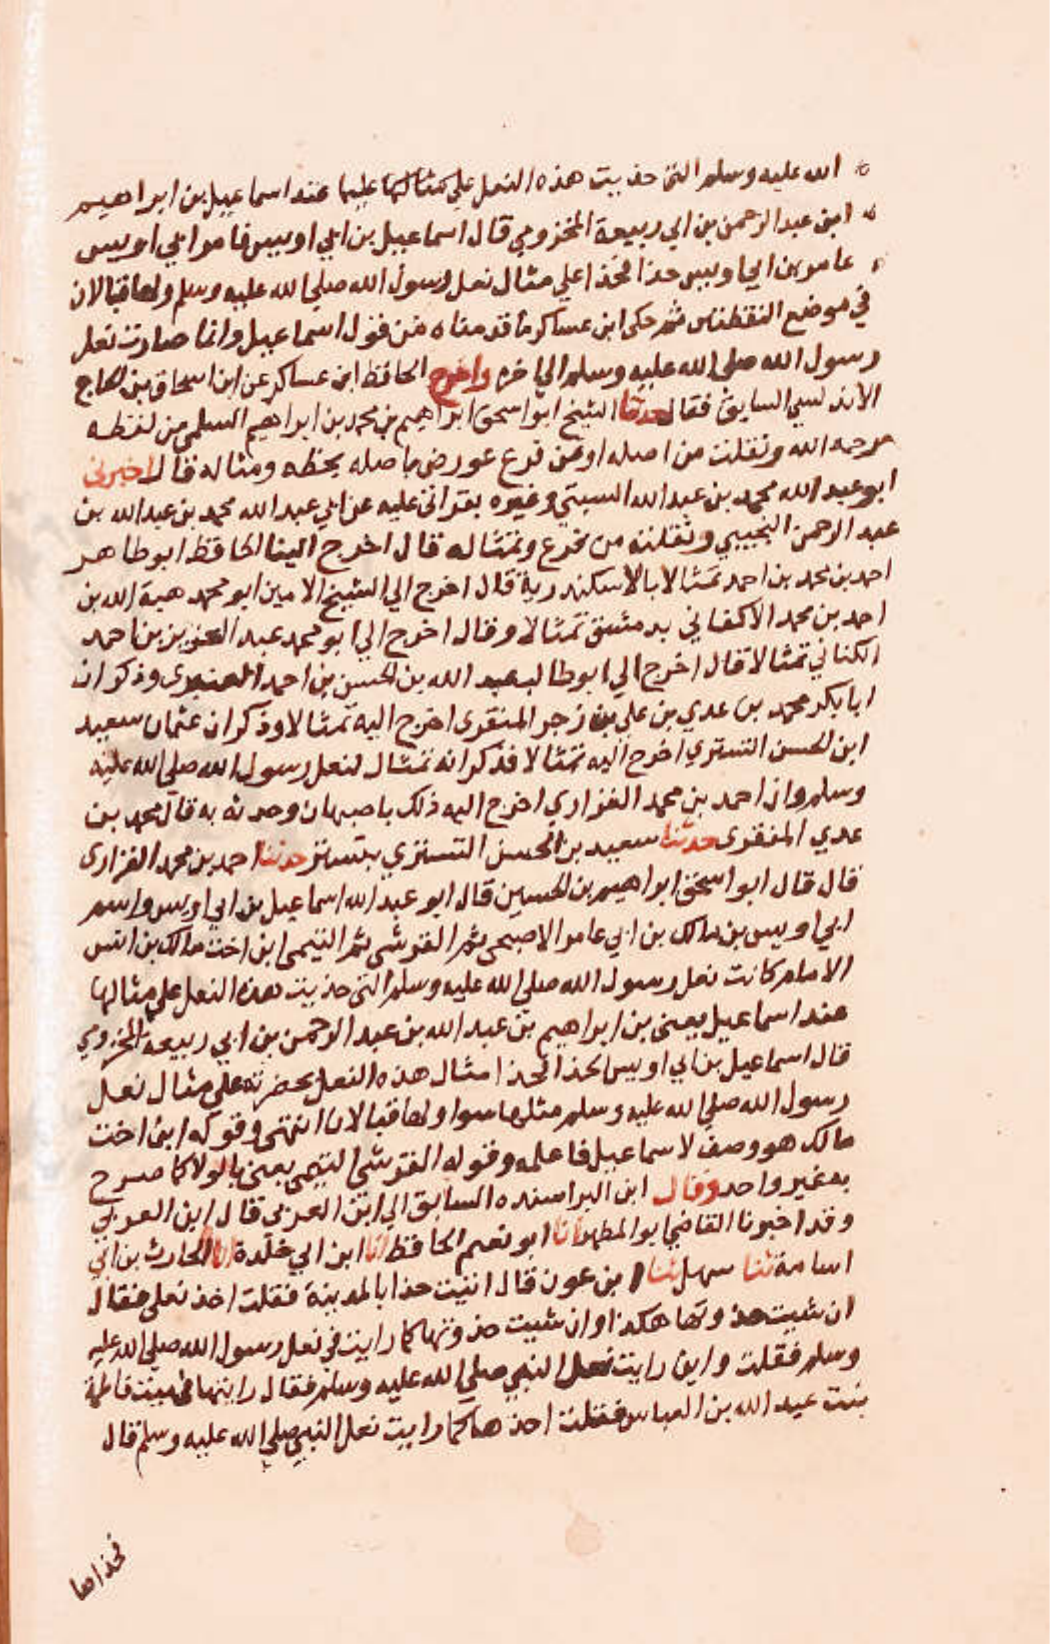 الله عليه وسلم التي حذيت هذه النعل علي مثالها عند اسماعيل بن ابراهيم
ابن عبد الرحمن بن ابي ربيعة المخزومي قال اسماعيل بن ابي اويس فامر ابي اويس
عامر بن ابي اويس حذا فحذا علي مثال نعل رسول الله صلي الله عليه وسلم ولها قبالان
في موضع النقطتان ثم حكي ابن عساكر ما قدمناه من قول اسماعيل وانما صارت نعل
رسول الله صلي الله عليه وسلم الي اخره واخرج الحافظ ابن عساكر عن ابن اسحاق بن الحاج
الاندلسي السابق فقال حدثنا الشيخ ابو اسحق ابراهيم بن محمد بن ابراهيم السلمي من لفظه
رحمه الله ونقلت من اصله او من فرع عورض باصله بخطه ومثاله قال اخبرني
ابو عبد الله محمد بن عبد الله السبتي وغيره بقراتي عليه عن ابي عبد الله محمد بن عبد الله بن
عبد الرحمن التجيبي ونقلته من فرع وتمثاله قال اخرج الينا الحافظ ابو طاهر
احمد بن محمد بن احمد تمثالا بالاسكندرية قال اخرج الي الشيخ الامين ابو محمد هبة الله بن
احمد بن محمد الاكفاني بدمشق تمثالا وقال اخرج الي ابو محمد عبد العزيز بن احمد
الكناني تمثالا قال اخرج الي ابو طالب عبد الله بن الحسن بن احمد العنبري وذكر ان
ابا بكر محمد بن عدي بن علي بن زجر المنقري اخرج اليه تمثالا وذكر ان عثمان سعيد
ابن الحسن التستري اخرج اليه تمثالا فذكر انه تمثال لنعل رسول الله صلي الله عليه
وسلم وان احمد بن محمد الفزاري اخرج اليه ذلك باصبهان وحدثه به قال محمد بن
عدي المنقري حدثنا سعيد بن الحسن التستري بتستر حدثنا احمد بن محمد الفزاري
قال قال ابو اسحق ابراهيم بن الحسين قال ابو عبد الله اسماعيل بن ابي اويس واسم
ابي اويس بن مالك بن ابي عامر الاصبحي ثم القرشي ثم التيمي ابن اخت مالك بن انس
الامام كانت نعل رسول الله صلي الله عليه وسلم التي حذيت هذه النعل علي مثالها
عند اسماعيل يعني بن ابراهيم بن عبد الله بن عبد الرحمن بن ابي ربيعة المخزومي
قال اسماعيل بن ابي اويس فحذا الحذا مثال هذه النعل بحضرته علي مثال نعل
رسول الله صلي الله عليه وسلم مثلها سوا ولها قبالان انتهي وقوله ابن اخت
مالك هو وصف لاسماعيل فاعلمه وقوله القرشي التيمي يعني بالولا كما صرح
به غير واحد وقال ابن البر اسنده السابق الي ابن العربي قال ابن العربي
وقد اخبرنا القاضي ابو المطهر انا ابو نعيم الحافظ انا ابن ابي خلدة انا الحارث بن ابي
اسامة ثنا سهل ثنا بن عون قال اتيت حذا بالمدينة فقلت احذ نعلي فقال
ان شيت حذوتها هكذا وان شيت حذوتها كما رايت في نعل رسول الله صلي الله عليه
وسلم فقلت واين رايت نعل النبي صلي الله عليه وسلم فقال رايتها في بيت فاطمة
بنت عبيد الله بن العباس فقلت احذها كما رايت نعل النبي صلي الله عليه وسلم قال
فحذاها